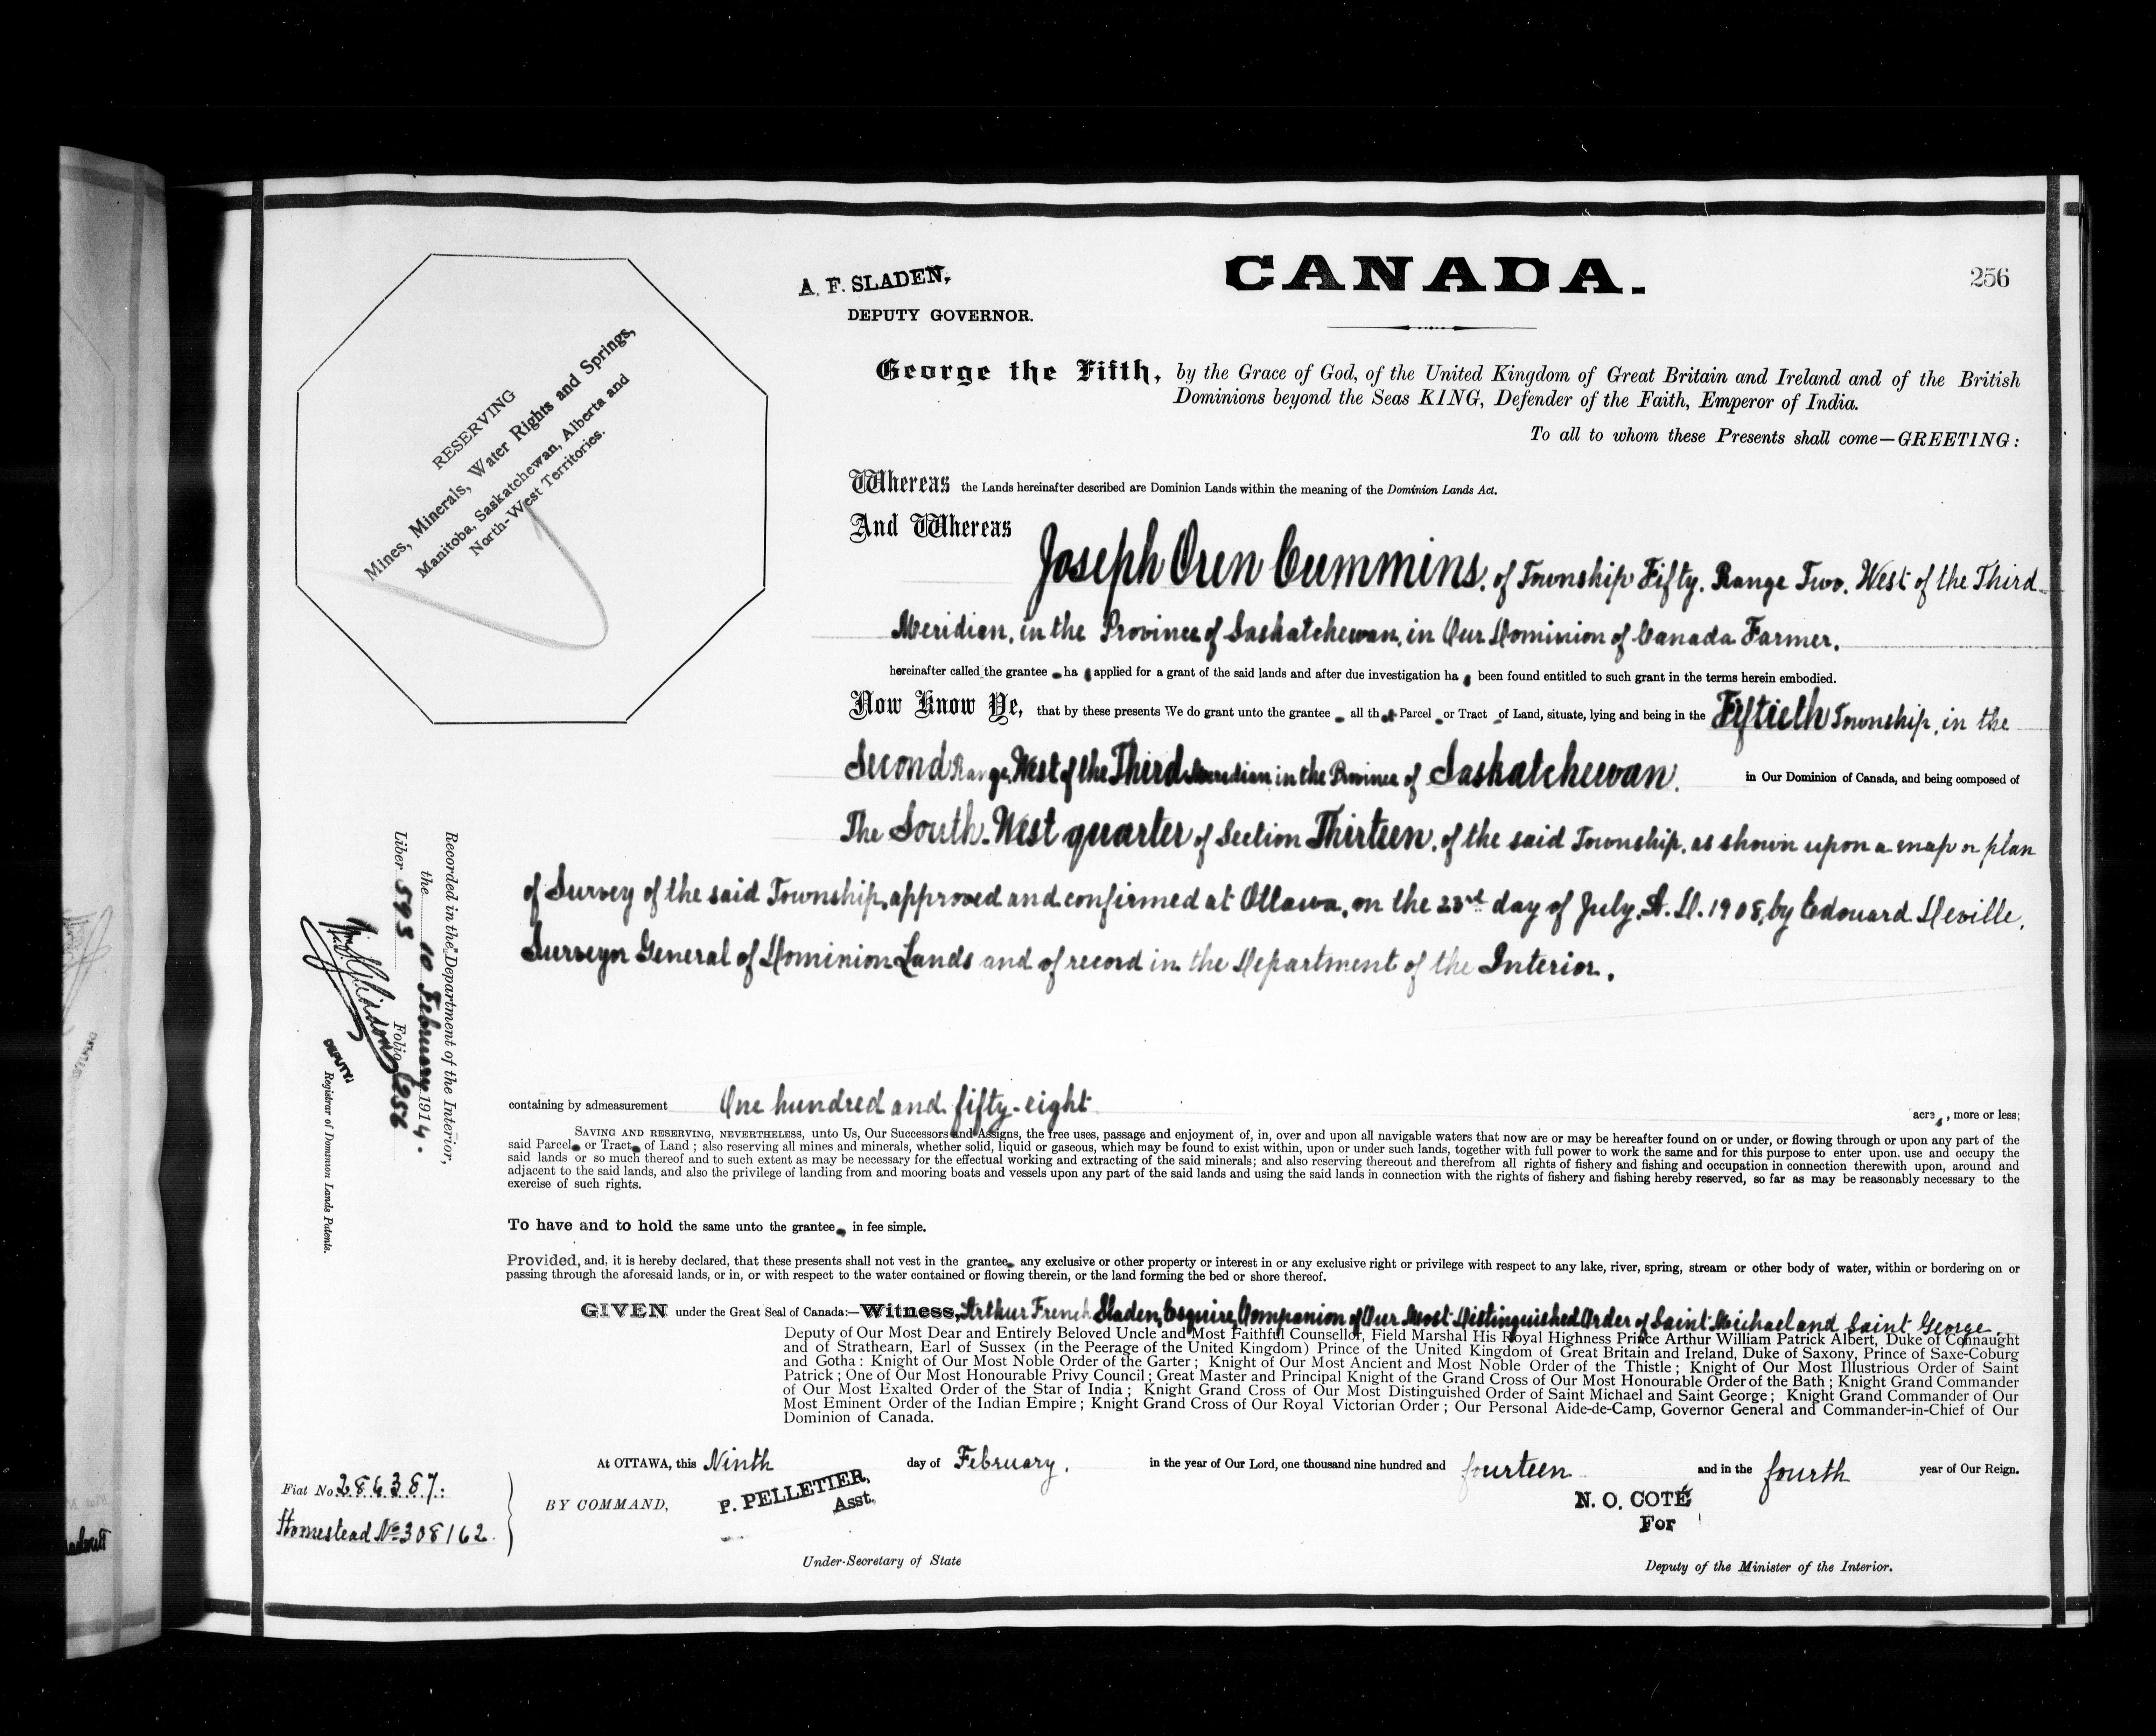 CANADA.
256
A. F. SLADEN,
DEPUTY GOVERNOR.
RESERVING
Mines, Minerals, Water Rights and Springs,
Manitoba, Saskatchewan, Alberta and
North-West Territories.
George the Fifth, by the Grace of God, of the United Kingdom of Great Britain and Ireland and of the British
Dominions beyond the Seas KING, Defender of the Faith, Emperor of India.
To all to whom these Presents shall come—GREETING:
Whereas the Lands hereinafter described are Dominion Lands within the meaning of the Dominion Lands Act.
And Whereas
Joseph Oren Cummins, of Township Fifty, Range Two, West of the Third
Meridian, in the Province of Saskatchewan, in Our Dominion of Canada Farmer,
hereinafter called the grantee ha applied for a grant of the said lands and after due investigation ha been found entitled to such grant in the terms herein embodied.
Now Know Ye, that by these presents We do grant unto the grantee all that Parcel or Tract of Land, situate, lying and being in the Fiftieth Township, in the
Second Range, West of the Third Meridian in the Province of Saskatchewan. in Our Dominion of Canada, and being composed of
The South-West quarter of Section Thirteen, of the said Township, as shown upon a map or plan
of Survey of the said Township, approved and confirmed at Ottawa, on the 23rd day of July, A. D. 1908, by Edouard Deville,
Surveyor General of Dominion Lands and of record in the Department of the Interior.
containing by admeasurement One hundred and fifty-eight acres, more or less;
SAVING AND RESERVING, NEVERTHELESS, unto Us, Our Successors and Assigns, the free uses, passage and enjoyment of, in, over and upon all navigable waters that now are or may be hereafter found on or under, or flowing through or upon any part of the
said Parcel or Tract of Land; also reserving all mines and minerals, whether solid, liquid or gaseous, which may be found to exist within, upon or under such lands, together with full power to work the same and for this purpose to enter upon, use and occupy the
said lands or so much thereof and to such extent as may be necessary for the effectual working and extracting of the said minerals; and also reserving thereout and therefrom all rights of fishery and fishing and occupation in connection therewith upon, around and
adjacent to the said lands, and also the privilege of landing from and mooring boats and vessels upon any part of the said lands and using the said lands in connection with the rights of fishery and fishing hereby reserved, so far as may be reasonably necessary to the
exercise of such rights.
To have and to hold the same unto the grantee in fee simple.
Provided, and, it is hereby declared, that these presents shall not vest in the grantee any exclusive or other property or interest in or any exclusive right or privilege with respect to any lake, river, spring, stream or other body of water, within or bordering on or
passing through the aforesaid lands, or in, or with respect to the water contained or flowing therein, or the land forming the bed or shore thereof.
GIVEN under the Great Seal of Canada:—Witness, Arthur French Sladen, Esquire, Companion of Our Most Distinguished Order of Saint Michael and Saint George,
Deputy of Our Most Dear and Entirely Beloved Uncle and Most Faithful Counsellor, Field Marshal His Royal Highness Prince Arthur William Patrick Albert, Duke of Connaught
and of Strathearn, Earl of Sussex (in the Peerage of the United Kingdom) Prince of the United Kingdom of Great Britain and Ireland, Duke of Saxony, Prince of Saxe-Coburg
and Gotha: Knight of Our Most Noble Order of the Garter; Knight of Our Most Ancient and Most Noble Order of the Thistle; Knight of Our Most Illustrious Order of Saint
Patrick; One of Our Most Honourable Privy Council; Great Master and Principal Knight of the Grand Cross of Our Most Honourable Order of the Bath; Knight Grand Commander
of Our Most Exalted Order of the Star of India; Knight Grand Cross of Our Most Distinguished Order of Saint Michael and Saint George; Knight Grand Commander of Our
Most Eminent Order of the Indian Empire; Knight Grand Cross of Our Royal Victorian Order; Our Personal Aide-de-Camp, Governor General and Commander-in-Chief of Our
Dominion of Canada.
At OTTAWA, this Ninth day of February, in the year of Our Lord, one thousand nine hundred and fourteen and in the fourth year of Our Reign.
BY COMMAND, P. PELLETIER,
Asst.
Under-Secretary of State
N. O. COTÉ
For
Deputy of the Minister of the Interior.
Fiat No 286387.
Homestead No 308162
Recorded in the Department of the Interior,
the 10 February 1914.
Liber 593 Folio 256
DEPUTY
Registrar of Dominion Lands Patents.